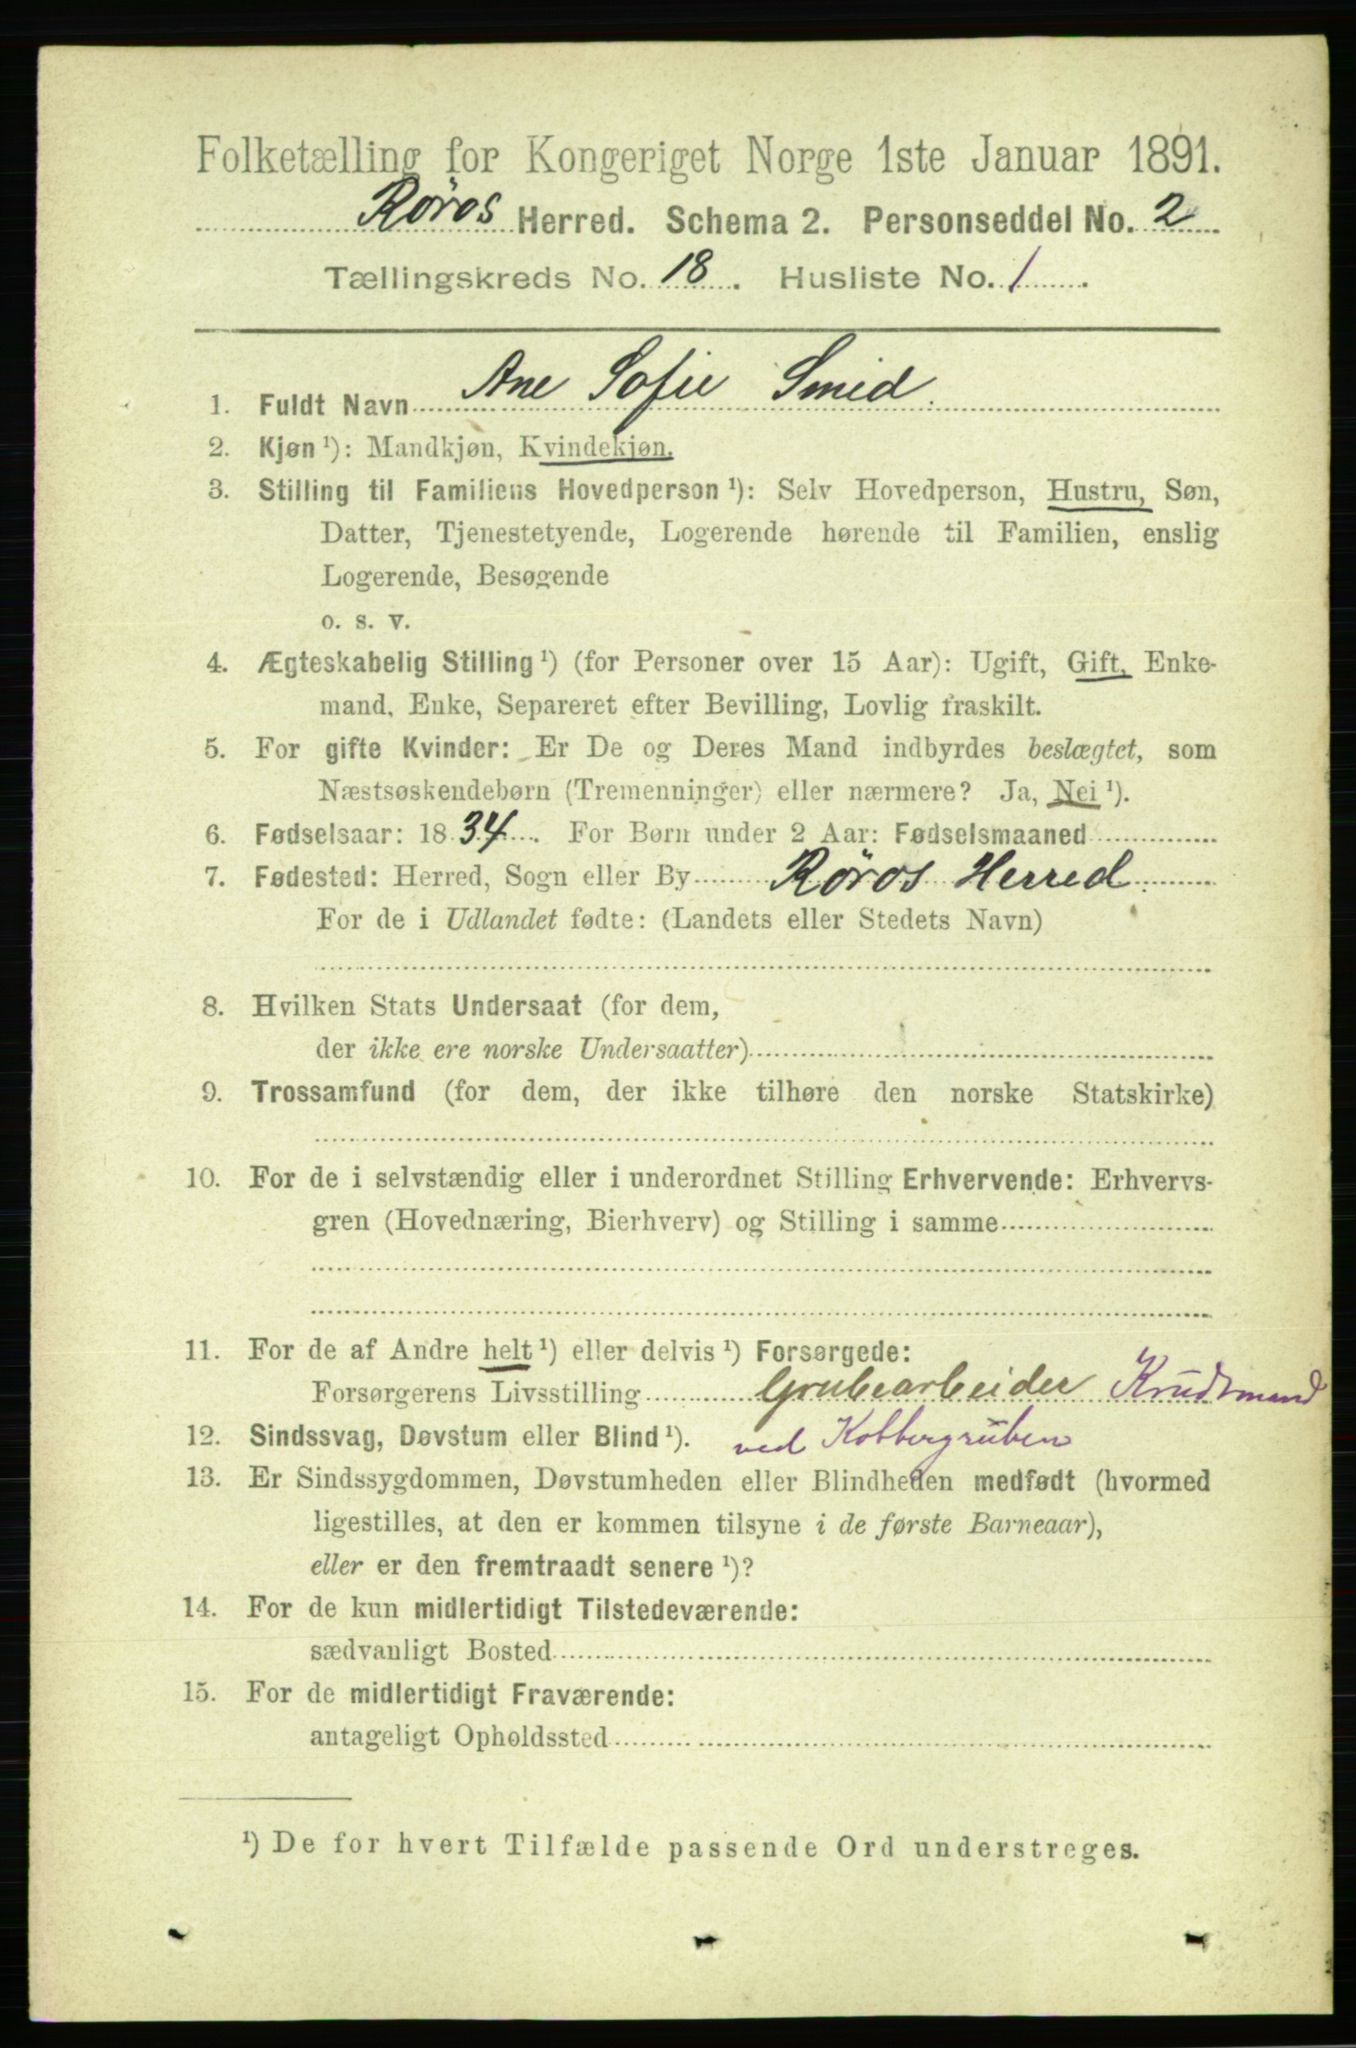 Folketælling for Kongeriget Norge 1ste Januar 1891.
Røros Herred. Schema 2. Personseddel No. 2
Tællingskreds No. 18. Husliste No. 1.
1. Fuldt Navn Ane Sofie Smed.
2. Kjøn ¹): Mandkjøn, Kvindekjøn.
3. Stilling til Familiens Hovedperson ¹): Selv Hovedperson, Hustru, Søn,
Datter, Tjenestetyende, Logerende hørende til Familien, enslig
Logerende, Besøgende
o. s. v.
4. Ægteskabelig Stilling ¹) (for Personer over 15 Aar): Ugift, Gift, Enke-
mand, Enke, Separeret efter Bevilling, Lovlig fraskilt.
5. For gifte Kvinder: Er De og Deres Mand indbyrdes beslægtet, som
Næstsøskendebørn (Tremenninger) eller nærmere? Ja, Nei ¹).
6. Fødselsaar: 1834. For Børn under 2 Aar: Fødselsmaaned
7. Fødested: Herred, Sogn eller By Røros Herred.
For de i Udlandet fødte: (Landets eller Stedets Navn)
8. Hvilken Stats Undersaat (for dem,
der ikke ere norske Undersaatter)
9. Trossamfund (for dem, der ikke tilhøre den norske Statskirke)
10. For de i selvstændig eller i underordnet Stilling Erhvervende: Erhvervs-
gren (Hovednæring, Bierhverv) og Stilling i samme
11. For de af Andre helt ¹) eller delvis ¹) Forsørgede:
Forsørgerens Livsstilling Grubearbeider Krudtmand
12. Sindssvag, Døvstum eller Blind ¹). ved Kobbergruben
13. Er Sindssygdommen, Døvstumheden eller Blindheden medfødt (hvormed
ligestilles, at den er kommen tilsyne i de første Barneaar),
eller er den fremtraadt senere ¹)?
14. For de kun midlertidigt Tilstedeværende:
sædvanligt Bosted
15. For de midlertidigt Fraværende:
antageligt Opholdssted
¹) De for hvert Tilfælde passende Ord understreges.